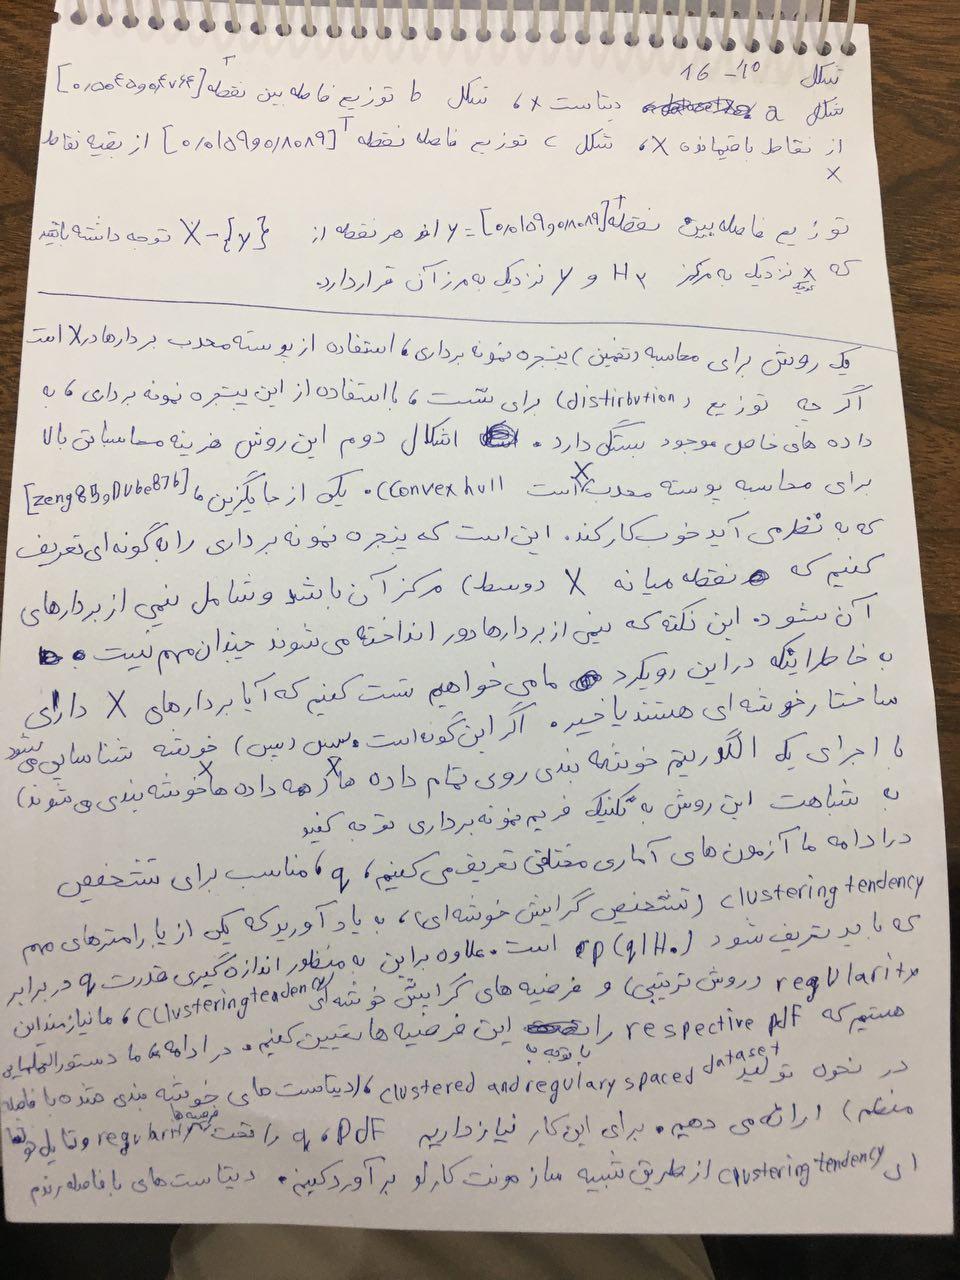 شکل 10-16
شکل a دیتاست x، شکل b توزیع فاصله بین نقطه [0/5545,0/4764]T
از نقاط باقیمانده X، شکل c توزیع فاصله نقطه [0/0159,0/8089]T از بقیه نقاط
x
توزیع فاصله بین نقطه y=[0/0159,0/8089]T از هر نقطه از X-{y} توجه داشته باشید
که x نزدیک به مرکز H2 و y نزدیک به مرز آن قرار دارد.
یک روش برای محاسبه (تخمین) پنجره نمونه برداری، استفاده از پوسته محدب بردارها در X است
اگر چه توزیع (distirbution) برای تست، با استفاده از این پنجره نمونه برداری، به
داده های خاص موجود بستگی دارد. اشکال دوم این روش هزینه محاسباتی بالا
برای محاسبه پوسته محدب X است (convex hull). یکی از جایگزین ها [zeng85,Dube87b]
که به نظر می آید خوب کار کند. این است که پنجره نمونه برداری را به گونه ای تعریف
کنیم که نقطه میانه X (وسط) مرکز آن باشد و شامل نیمی از بردارهای
آن شود. این نکته که نیمی از بردارها دور انداخته می شوند چندان مهم نیست.
به خاطر اینکه در این رویکرد ما می خواهیم تست کنیم که آیا بردارهای X دارای
ساختار خوشه ای هستند یا خیر. اگر این گونه است. سپس (پس) خوشه شناسایی می شود
با اجرای یک الگوریتم خوشه بندی روی تمام داده های X (همه داده های X خوشه بندی می شوند)
به شباهت این روش به تکنیک فریم نمونه برداری توجه کنید
در ادامه ما آزمون های آماری مختلفی تعریف می کنیم، q، مناسب برای تشخیص
clustering tendency (تشخیص گرایش خوشه ای)، به یاد آورید که یکی از پارامترهای مهم
که باید تعریف شود p(q|H0) است. علاوه براین به منظور اندازه گیری قدرت q در برابر
regularity (روش ترتیبی) و فرضیه های گرایش خوشه ای (clustering tendency)، ما نیازمند این
هستیم که respective pdf را با توجه به این فرضیه ها تعیین کنیم. در ادامه ما دستورالعملهایی
در نحوه تولید clustered and regulary spaced dataset، (دیتاست های خوشه بندی شده با فاصله
منظم) ارائه می دهیم. برای این کار نیاز داریم q، pdf را تحت فرضیه های regularity و تمایل خوشه
ای clustering tendency از طریق شبیه ساز مونت کارلو برآورد کنیم. دیتاست های با فاصله